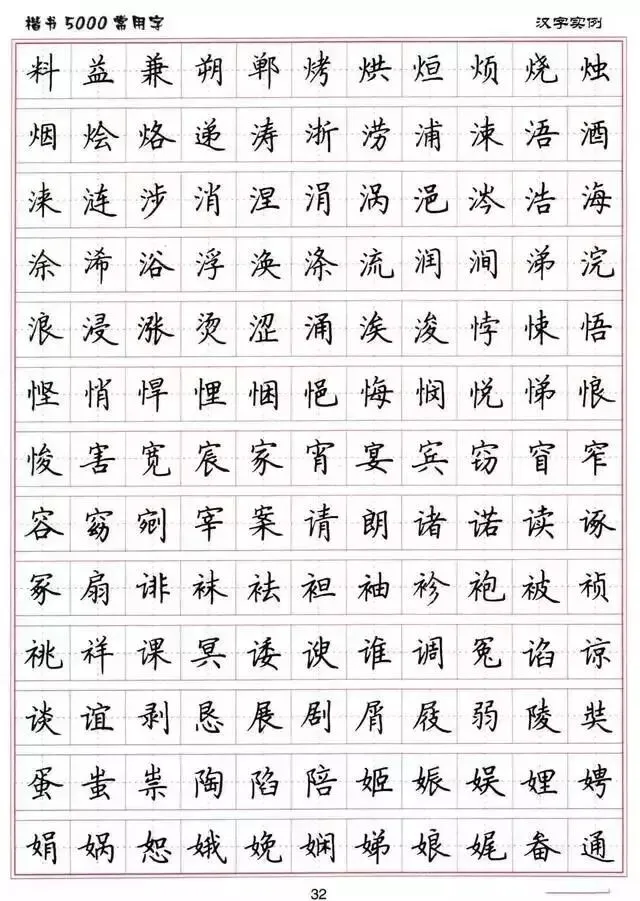 楷书5000常用字 汉字实例
料益兼朔郸烤烘烜烦烧烛
烟烩烙递涛浙涝浦涑浯酒
涞涟涉消涅涓涡浥涔浩海
涂浠浴浮涣涤流润涧涕浣
浪浸涨烫涩涌涘浚悖悚悟
悭悄悍悝悃悒悔悯悦悌悢
悛害宽宸家宵宴宾窈窅窄
容窈剜宰案请朗诸诺读诼
冢扇诽袜袪袒袖袗袍被祯
祧祥课冥诿谀谁调冤谄谅
谈谊剥恳展剧屑屐弱陵奘
蛋蚩祟陶陷陪姬娠娱娌娉
娟娲恕娥娩娴娣娘娓畚通
32